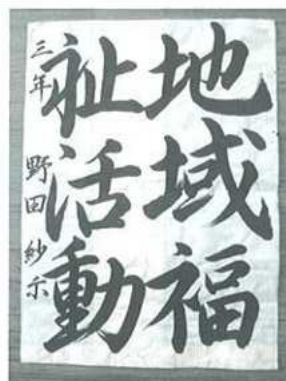 地域福
祉活動
三年 野田紗示